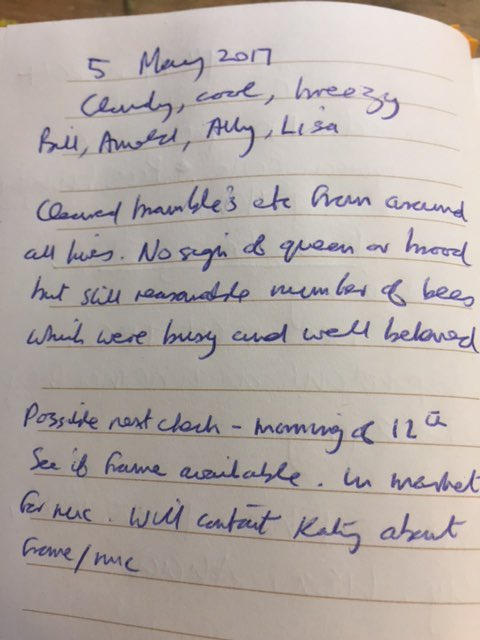 5 May 2017
Cloudy, cool, breezy
Bill, Arnold, Ally, Lisa
Cleared bramble's etc from around
all hives. No sign of queen or brood
but still reasonable number of bees
which were busy and well beloved
Possible next check - morning of 12th
See if frame available. In market
for nuc. Will contact Katy about
frame/nuc